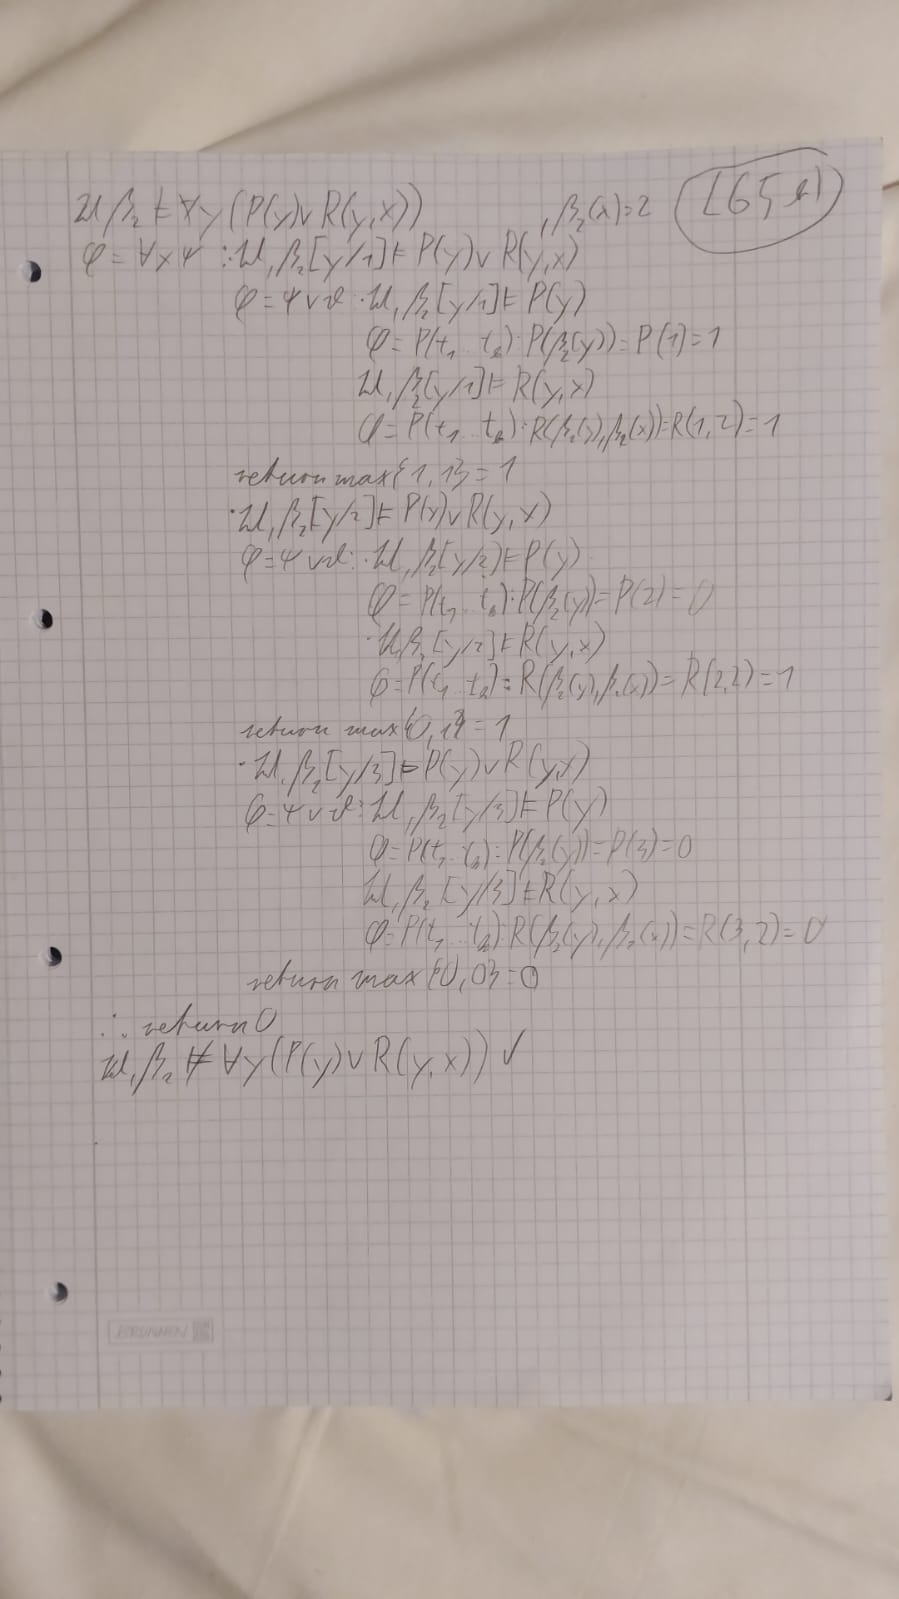 𝔄, β₂ ⊨ ∀y(P(y)∨R(y,x)) , β₂(x)=2
φ=∀xψ : 𝔄, β₂[y/1]⊨ P(y)∨R(y,x)
φ=ψ∨ϑ : 𝔄, β₂[y/1]⊨ P(y)
φ=P(t₁..tₖ): P(β₂(y))=P(1)=1
𝔄, β₂[y/1]⊨ R(y,x)
φ=P(t₁..tₖ): R(β₂(y),β₂(x))=R(1,2)=1
return max{1,1}=1
·𝔄, β₂[y/2]⊨ P(y)∨R(y,x)
φ=ψ∨ϑ: ·𝔄, β₂[y/2]⊨P(y)
φ=P(t₁..tₖ): P(β₂(y))=P(2)=0
·𝔄, β₂[y/2]⊨R(y,x)
φ=P(t₁..tₖ): R(β₂(y),β₂(x))=R(2,2)=1
return max{0,1}=1
·𝔄, β₂[y/3]⊨P(y)∨R(y,x)
φ=ψ∨ϑ: 𝔄, β₂[y/3]⊨P(y)
φ=P(t₁..tₖ): P(β₂(y))=P(3)=0
𝔄, β₂[y/3]⊨R(y,x)
φ=P(t₁..tₖ): R(β₂(y),β₂(x))=R(3,2)=0
return max{0,0}=0
∴ return 0
𝔄, β₂ ⊭ ∀y(P(y)∨R(y,x)) ✓
BRUNNEN